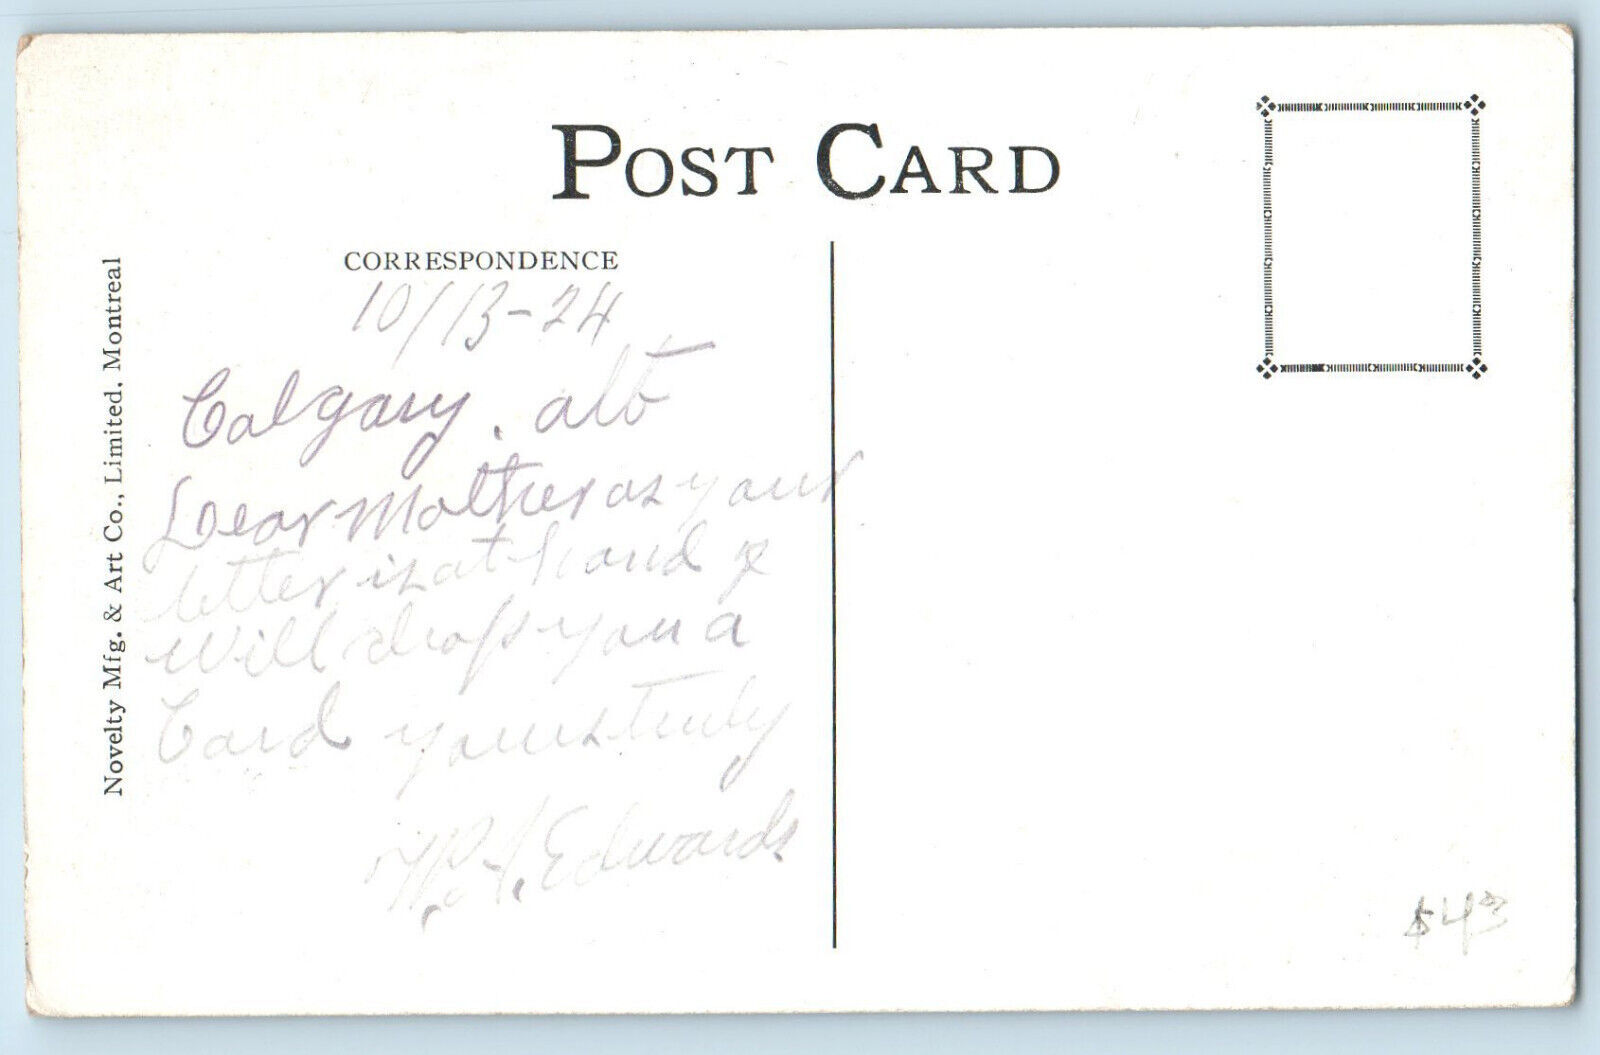 POST CARD
CORRESPONDENCE
10/13-24
Calgary. alt
Dear Mother as your
letter is at hand &
will drop you a
Card yours truly
Edwards
Novelty Mfg. & Art Co., Limited. Montreal